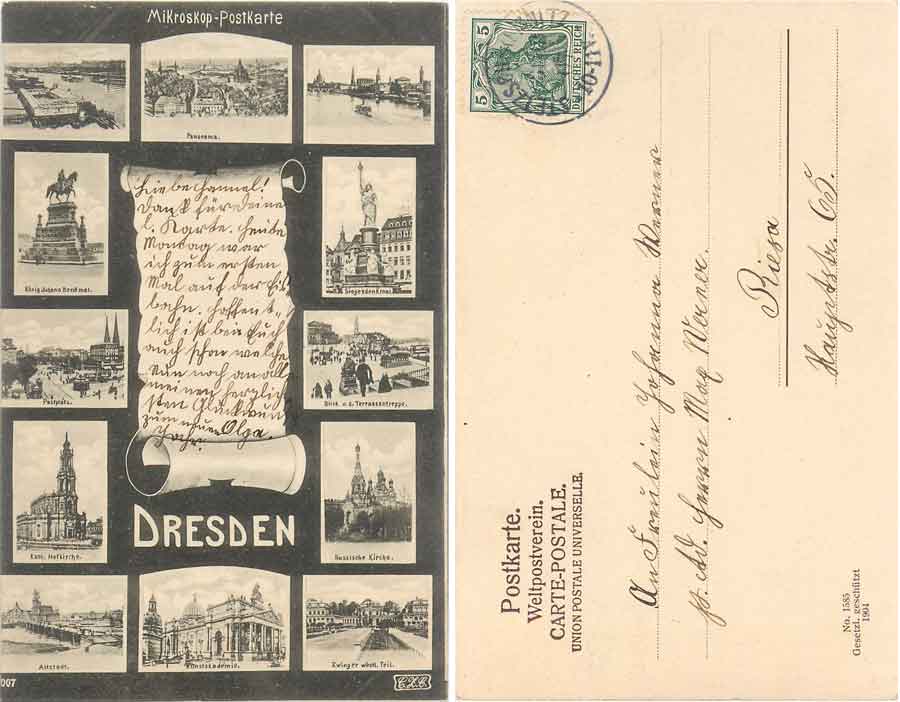 Mikroskop-Postkarte
Panorama.
König Johann Denkmal.
Siegesdenkmal
Postplatz.
Blick v. d. Terrassentreppe.
Kath. Hofkirche.
Russische Kirche.
Altstadt.
Kunstakademie.
Zwinger westl. Teil.
Liebe Hannel!
Dank für Deine
l. Karte. Heute
Montag war
ich zum ersten
Mal auf der Eis-
bahn. Hoffent-
lich ist bei Euch
auch schon welche
Nun noch an all
meinen herzlich-
sten Glückwun
zum neuen
Jahr. Olga.
DRESDEN
007
5
5
DEUTSCHES REICH
10-11N
Postkarte.
Weltpostverein.
CARTE-POSTALE.
UNION POSTALE UNIVERSELLE.
An Fräulein Johanna Werner
p. Ad. Herrn Max Werner.
Riesa
Hauptstr.
No. 1585
Gesetzl. geschützt
1904